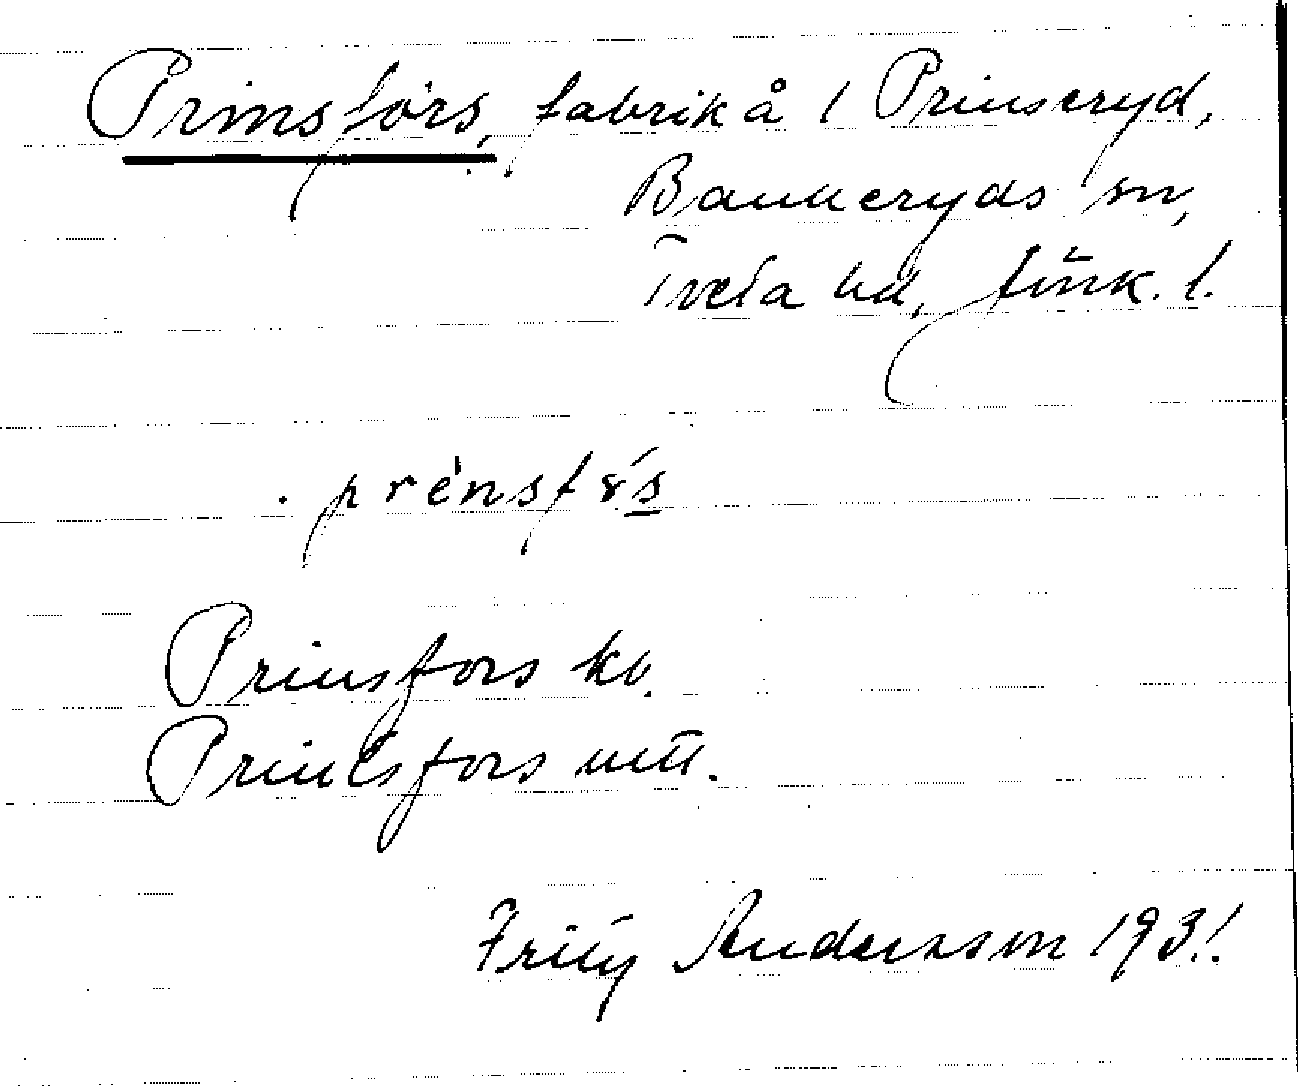 Prinsfors, fabrik å 1 Prinseryd,
Bankeryds sn,
Tveta hd, Jönk. l.
prénsfɤ́s
Prinsfors kv.
Prinsfors utt.
Fritz Andersson 1931.